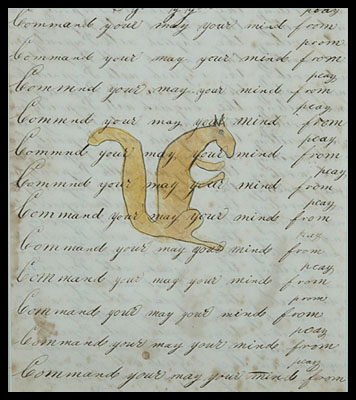 peay
Command your may your mind from
prom
Command your may your mind from
peay
Command your may your mind from
peay
Command your may your mind from
peay
Command your may your mind from
peay
Command your may your mind from
peay
Command your may your mind from
peay
Command your may your mind from
peay
Command your may your mind from
prom
Command your may your mind from
peay
Command your may your mind from
peay
Command your may your mind from